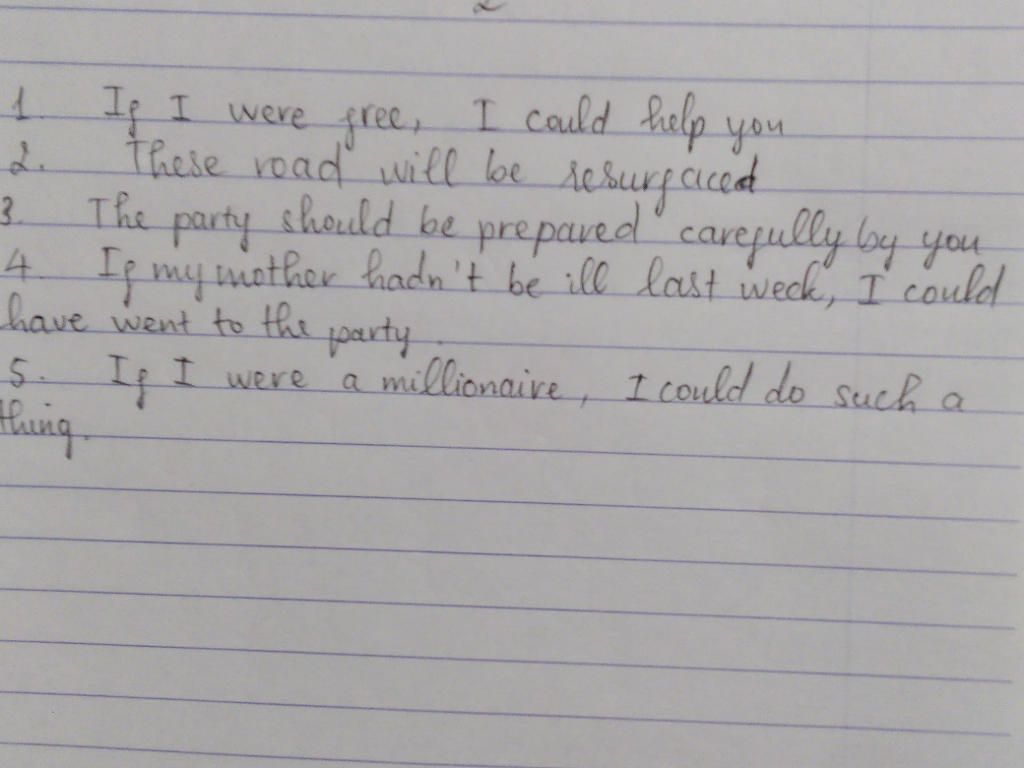 1. If I were free, I could help you
2. These road will be resurfaced
3. The party should be prepared carefully by you
4. If my mother hadn't be ill last week, I could
have went to the party.
5. If I were a millionaire, I could do such a
thing.